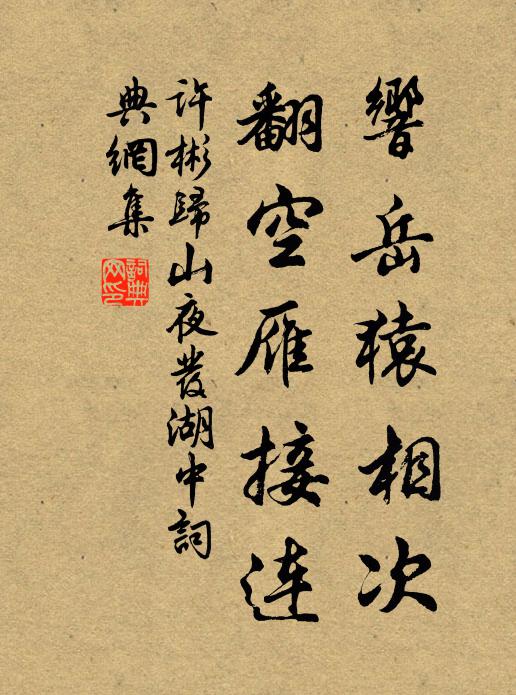 響岳猿相次
翻空雁接連
許彬歸山夜發湖中詞
典網集
詞典网印